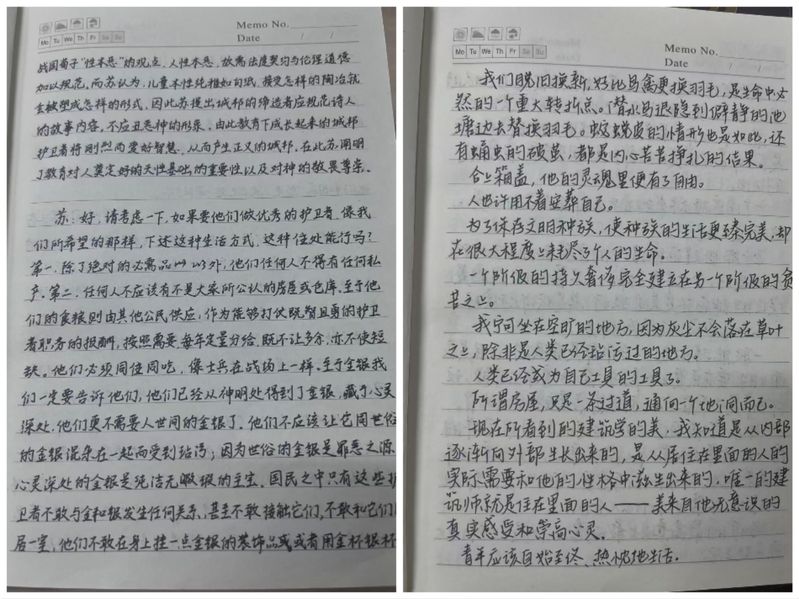 Memo No.
Mo Tu We Th Fr Sa Su
Date / /
战国荀子"性本恶"的观点，人性本恶，故需法度契约与伦理道德
加以规范。而苏认为，儿童本性纯推如白纸，接受怎样的陶冶就
会被塑成怎样的形式。因此苏提出城邦的缔造者应规范诗人
的故事内容，不应丑恶神的形象。由此教育下成长起来的城邦
护卫者将刚烈而爱好智慧，从而产生正义的城邦。在此苏阐明
了教育对人奠定好的天性基础的重要性以及对神的敬畏尊崇。
苏：好，请考虑一下，如果要他们做优秀的护卫者，像我
们所希望的那样，下述这种生活方式，这种住处能行吗？
第一，除了绝对的必需品以外，他们任何人不得有任何私
产。第二，任何人不应该有不是大家所公认的房屋或仓库。至于他
们的食粮则由其他公民供应，作为能够打仗既智且勇的护卫
者职务的报酬，按照需要，每年定量分给，既不让多余，亦不使短
缺。他们必须同住同吃，像士兵在战场上一样。至于金银我
们一定要告诉他们，他们已经从神明处得到了金银，藏于心灵
深处，他们更不需要人世间的金银了。他们不应该让它同世俗
的金银混杂在一起而受到玷污；因为世俗的金银是罪恶之源，
心灵深处的金银是纯洁无瑕的至宝。国民之中只有这些护
卫者不敢与金和银发生任何关系，甚至不敢接触它们，不敢和它们
居一室，他们不敢在身上挂一点金银的装饰品或者用金杯银杯
Memo No.
Mo Tu We Th Fr Sa Su
Date / /
我们脱旧换新，好比鸟禽更换羽毛，是生命中必
然的一个重大转折点。潜水鸟退隐到僻静的池
塘边去替换羽毛。蛇蜕皮的情形也是如此，还
有蛹虫的破茧，都是内心苦苦挣扎的结果。
合上箱盖，他的灵魂里便有了自由。
人也许用不着安葬自己。
为了保存文明种族，使种族的生活更臻完美，却
在很大程度上耗尽了个人的生命。
一个阶级的持久奢侈完全建立在另一个阶级的贫
苦之上。
我宁可坐在空旷的地方，因为灰尘不会落在草叶
之上，除非是人类已经玷污过的地方。
人类已经成为自己工具的工具了。
所谓房屋，只是一条过道，通向一个地洞而已。
现在所看到的建筑学的美，我知道是从内部
逐渐向外部生长出来的，是从居住在里面的人的
实际需要和他的性格中滋生出来的，唯一的建
筑师就是住在里面的人——美来自他无意识的
真实感受和崇高心灵。
青年应该自始至终、热忱地生活。